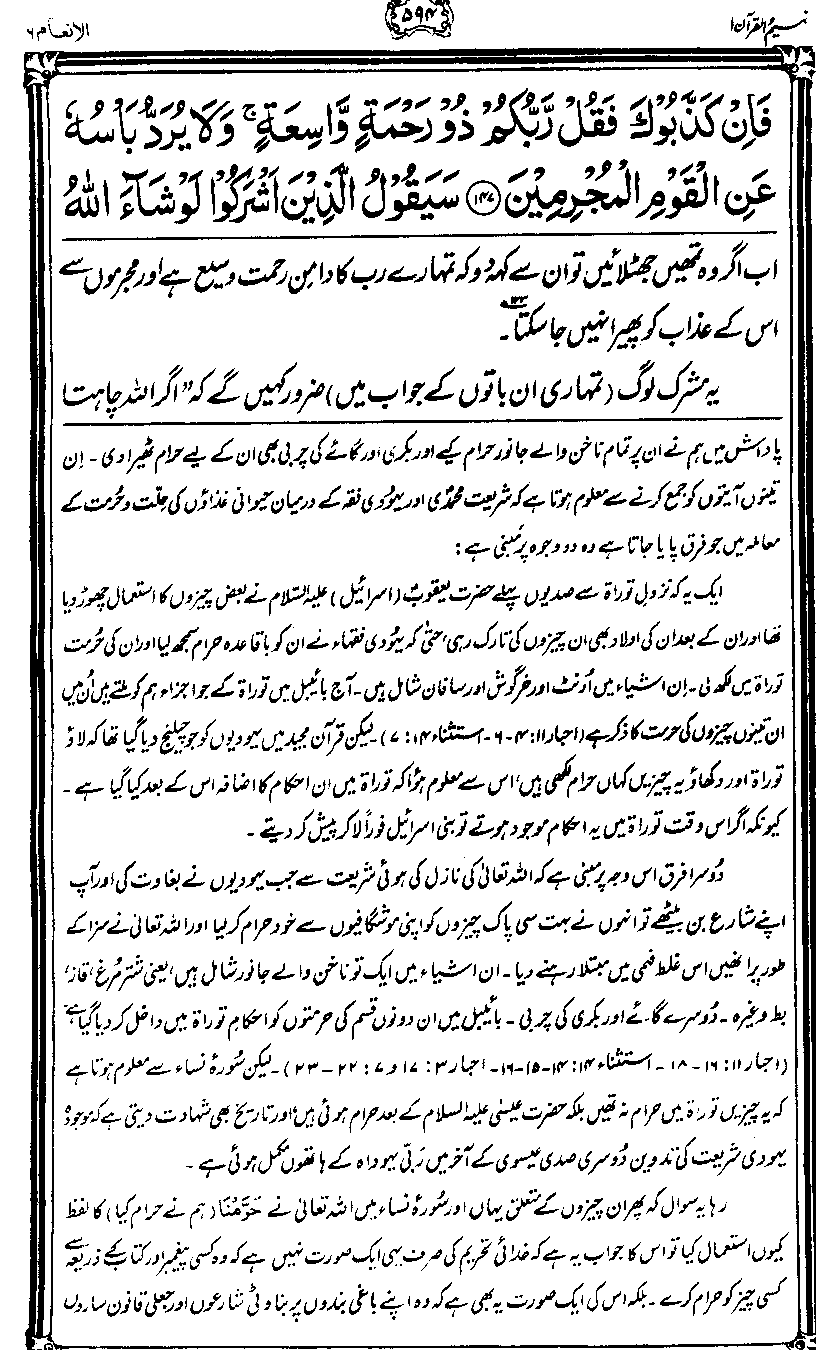 تفہیم القرآن ۱
۵۹۴
الانعام ۶
فَاِنْ كَذَّبُوْكَ فَقُلْ رَّبُّكُمْ ذُوْ رَحْمَةٍ وَّاسِعَةٍ ۚ وَلَا يُرَدُّ بَاْسُهٗ
عَنِ الْقَوْمِ الْمُجْرِمِيْنَ ﴿۱۴۷﴾ سَيَقُوْلُ الَّذِيْنَ اَشْرَكُوْا لَوْ شَآءَ اللّٰهُ
اب اگر وہ تمہیں جھٹلائیں تو ان سے کہہ دو کہ تمہارے رب کا دامنِ رحمت وسیع ہے اور مجرموں سے
اس کے عذاب کو پھیرا نہیں جا سکتا۔
یہ مشرک لوگ (تمہاری ان باتوں کے جواب میں) ضرور کہیں گے کہ "اگر اللہ چاہتا
پاداش میں ہم نے ان پر تمام ناخن والے جانور حرام کیے اور بکری اور گائے کی چربی بھی ان کے لیے حرام ٹھیرا دی۔ اِن
تینوں آیتوں کو جمع کرنے سے معلوم ہوتا ہے کہ شریعت محمدی اور یہودی فقہ کے درمیان حیوانی غذاؤں کی حلت و حرمت کے
معاملہ میں جو فرق پایا جاتا ہے وہ دو وجوہ پر مبنی ہے:
ایک یہ کہ نزولِ توراۃ سے صدیوں پہلے حضرت یعقوبؑ (اسرائیل) علیہ السلام نے بعض چیزوں کا استعمال چھوڑ دیا
تھا اور ان کے بعد ان کی اولاد بھی ان چیزوں کی تارک رہی، حتٰی کہ یہودی فقہاء نے ان کو باقاعدہ حرام سمجھ لیا اور ان کی حُرمت
توراۃ میں لکھ لی۔ اِن اشیاء میں اُونٹ اور خرگوش اور سافان شامل ہیں۔ آج بائیبل میں توراۃ کے جو اجزاء ہم کو ملتے ہیں اُن میں
ان تینوں چیزوں کی حرمت کا ذکر ہے (احبار ۱۱: ۴-۶۔ استثناء ۱۴: ۷)۔ لیکن قرآن مجید میں یہودیوں کو جو چیلنج دیا گیا تھا کہ لاؤ
توراۃ اور دکھاؤ یہ چیزیں کہاں حرام لکھی ہیں، اس سے معلوم ہؤا کہ توراۃ میں ان احکام کا اضافہ اس کے بعد کیا گیا ہے۔
کیونکہ اگر اس وقت توراۃ میں یہ احکام موجود ہوتے تو بنی اسرائیل فوراً لا کر پیش کر دیتے۔
دُوسرا فرق اس وجہ پر مبنی ہے کہ اللہ تعالیٰ کی نازل کی ہوئی شریعت سے جب یہودیوں نے بغاوت کی اور آپ
اپنے شارع بن بیٹھے تو انہوں نے بہت سی پاک چیزوں کو اپنی موشگافیوں سے خود حرام کر لیا اور اللہ تعالیٰ نے سزا کے
طور پر انہیں اس غلط فہمی میں مبتلا رہنے دیا۔ ان اشیاء میں ایک تو ناخن والے جانور شامل ہیں، یعنی شتر مُرغ، قاز،
بط وغیرہ۔ دُوسرے گائے اور بکری کی چربی۔ بائیبل میں ان دونوں قسم کی حرمتوں کو احکامِ توراۃ میں داخل کر دیا گیا ہے
(احبار ۱۱: ۱۶-۱۸۔ استثناء ۱۴: ۱۴-۱۵-۱۶۔ احبار ۳: ۱۷ و ۷: ۲۲-۲۳)۔ لیکن سُورۂ نساء سے معلوم ہوتا ہے
کہ یہ چیزیں توراۃ میں حرام نہ تھیں بلکہ حضرت عیسیٰ علیہ السلام کے بعد حرام ہوئی ہیں، اور تاریخ بھی شہادت دیتی ہے کہ موجودہ
یہودی شریعت کی تدوین دُوسری صدی عیسوی کے آخر میں ربّی یہوداہ کے ہاتھوں مکمل ہوئی ہے۔
رہا یہ سوال کہ پھر ان چیزوں کے متعلق یہاں اور سُورۂ نساء میں اللہ تعالیٰ نے حَرَّمْنَا (ہم نے حرام کیا) کا لفظ
کیوں استعمال کیا تو اس کا جواب یہ ہے کہ خدائی تحریم کی صرف یہی ایک صورت نہیں ہے کہ وہ کسی پیغمبر اور کتاب کے ذریعہ سے
کسی چیز کو حرام کرے۔ بلکہ اس کی ایک صورت یہ بھی ہے کہ وہ اپنے باغی بندوں پر بناوٹی شارعوں اور جعلی قانون سازوں